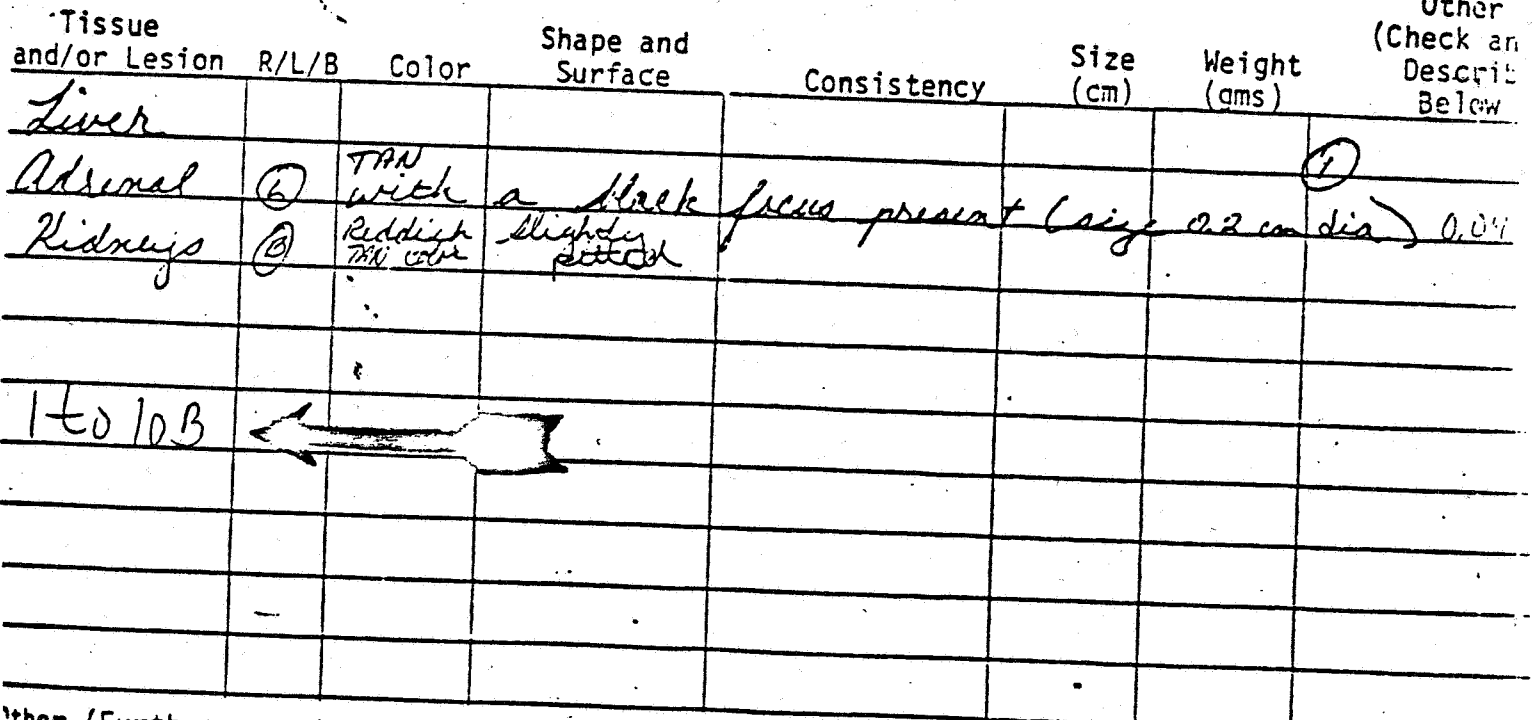 Tissue and/or Lesion R/L/B Color Shape and Surface Consistency Size (cm) Weight (gms) Other (Check an Describ Below
Liver ①
Adrenal Ⓛ TAN with a black focus present (size 0.2 cm dia) 0.04
Kidneys Ⓑ Reddish TAN color Slightly pitted
1 to 10B